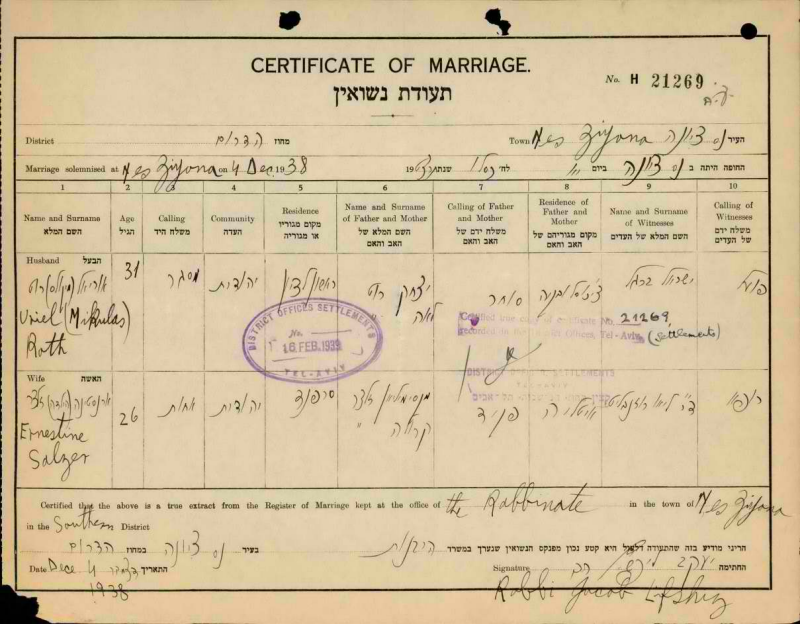 CERTIFICATE OF MARRIAGE.
No. H 21269
תעודת נשואין
District מחוז הדרום Town Nes Ziyona נס ציונה העיר
Marriage solemnised at Nes Ziyona on 4 Dec. 1938 החופה היתה ב נס ציונה ביום לח' כסלו שנת
1 2 3 4 5 6 7 8 9 10
Name and Surname השם המלא
Age הגיל
Calling משלח היד
Community העדה
Residence מקום מגוריו או מגוריה
Name and Surname of Father and Mother השם המלא של האב והאם
Calling of Father and Mother משלח ידם של האב והאם
Residence of Father and Mother מקום מגוריהם של האב והאם
Name and Surname of Witnesses השם המלא של העדים
Calling of Witnesses משלח ידם של העדים
Husband הבעל
אוריאל רוט 31 מסגר יהודית ראשון לציון יצחק רוט סוחר ישראל פועל
לאה "
Uriel (Mikulas)
Roth
DISTRICT OFFICES SETTLEMENTS
No.
16 FEB. 1939
TEL-AVIV
Certified true certificate No. 21269
recorded in the Offices, Tel-Aviv (Settlements)
DISTRICT SETTLEMENTS
Wife האשה
ארנסטינה זלצר 26 אחות יהודית סרפנד זלצר פקיד ד"ר רופא
Ernestine
Salzer
Certified that the above is a true extract from the Register of Marriage kept at the office of the Rabbinate in the town of Nes Ziyona
in the Southern District
הריני מודיע בזה שהתעודה דלעיל היא קטע נכון מפנקס הנשואין שנערך במשרד הרבנות בעיר נס ציונה במחוז הדרום
Date Dec 4 1938 דצמבר 4 התאריך Signature יעקב הרב החתימה
Rabbi Jacob Lifshiz